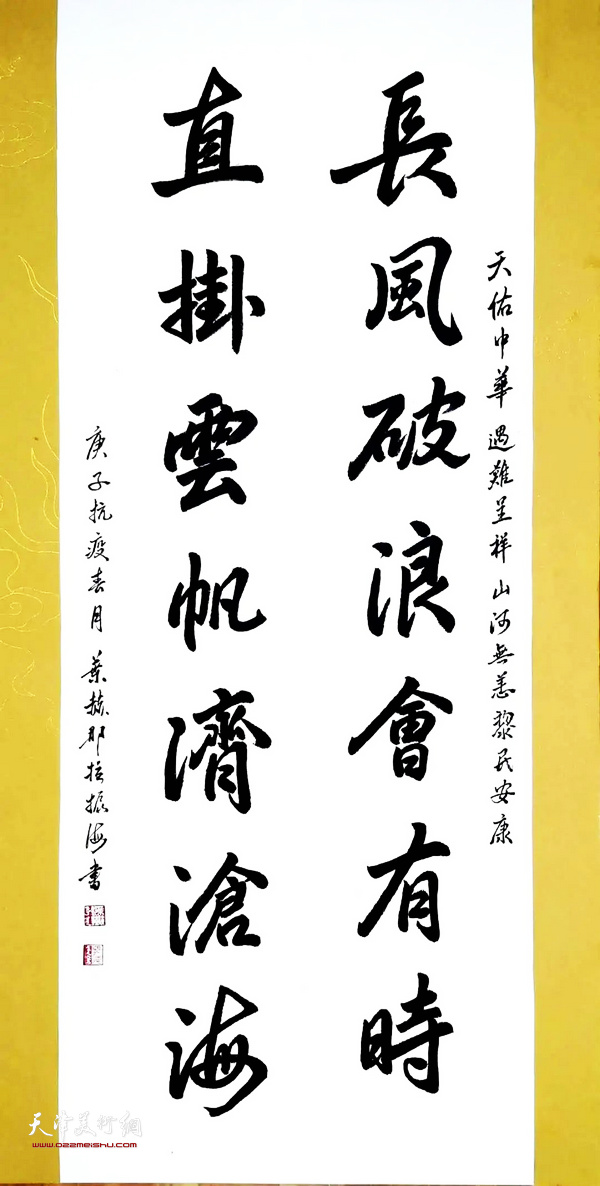 天佑中華 遇難呈祥 山河無恙 黎民安康
長風破浪會有時
直掛雲帆濟滄海
庚子抗疫春月 葉赫那拉振海書
天津美術網
www.022meishu.com